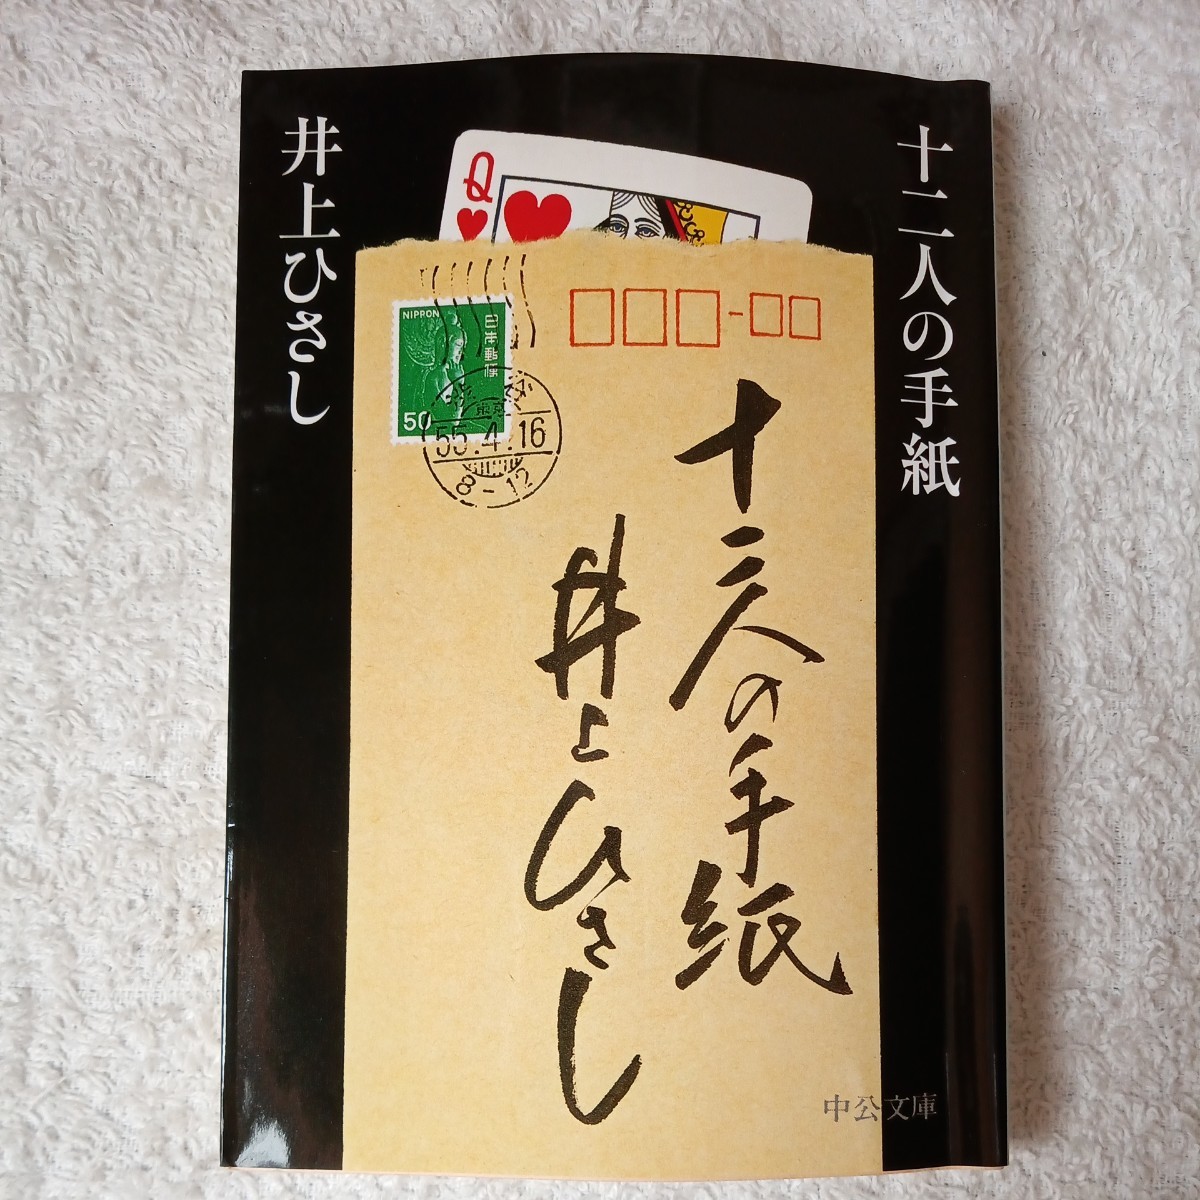 十二人の手紙
井上ひさし
Q
NIPPON
日本郵便
50
東京
55.4.16
8-12
十二人の手紙
井上ひさし
中公文庫